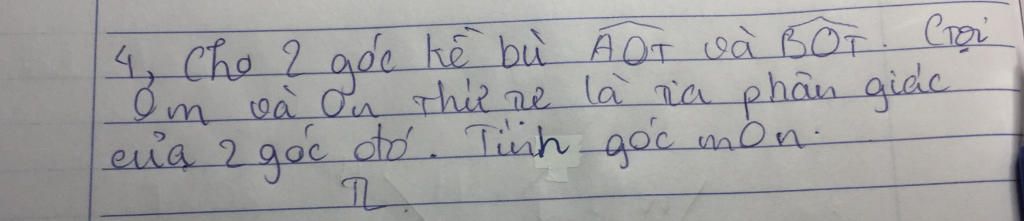 4, Cho 2 góc kề bù AOT và BOT. Gọi
Om và On thứ tự là tia phân giác
của 2 góc đó. Tính góc mOn.